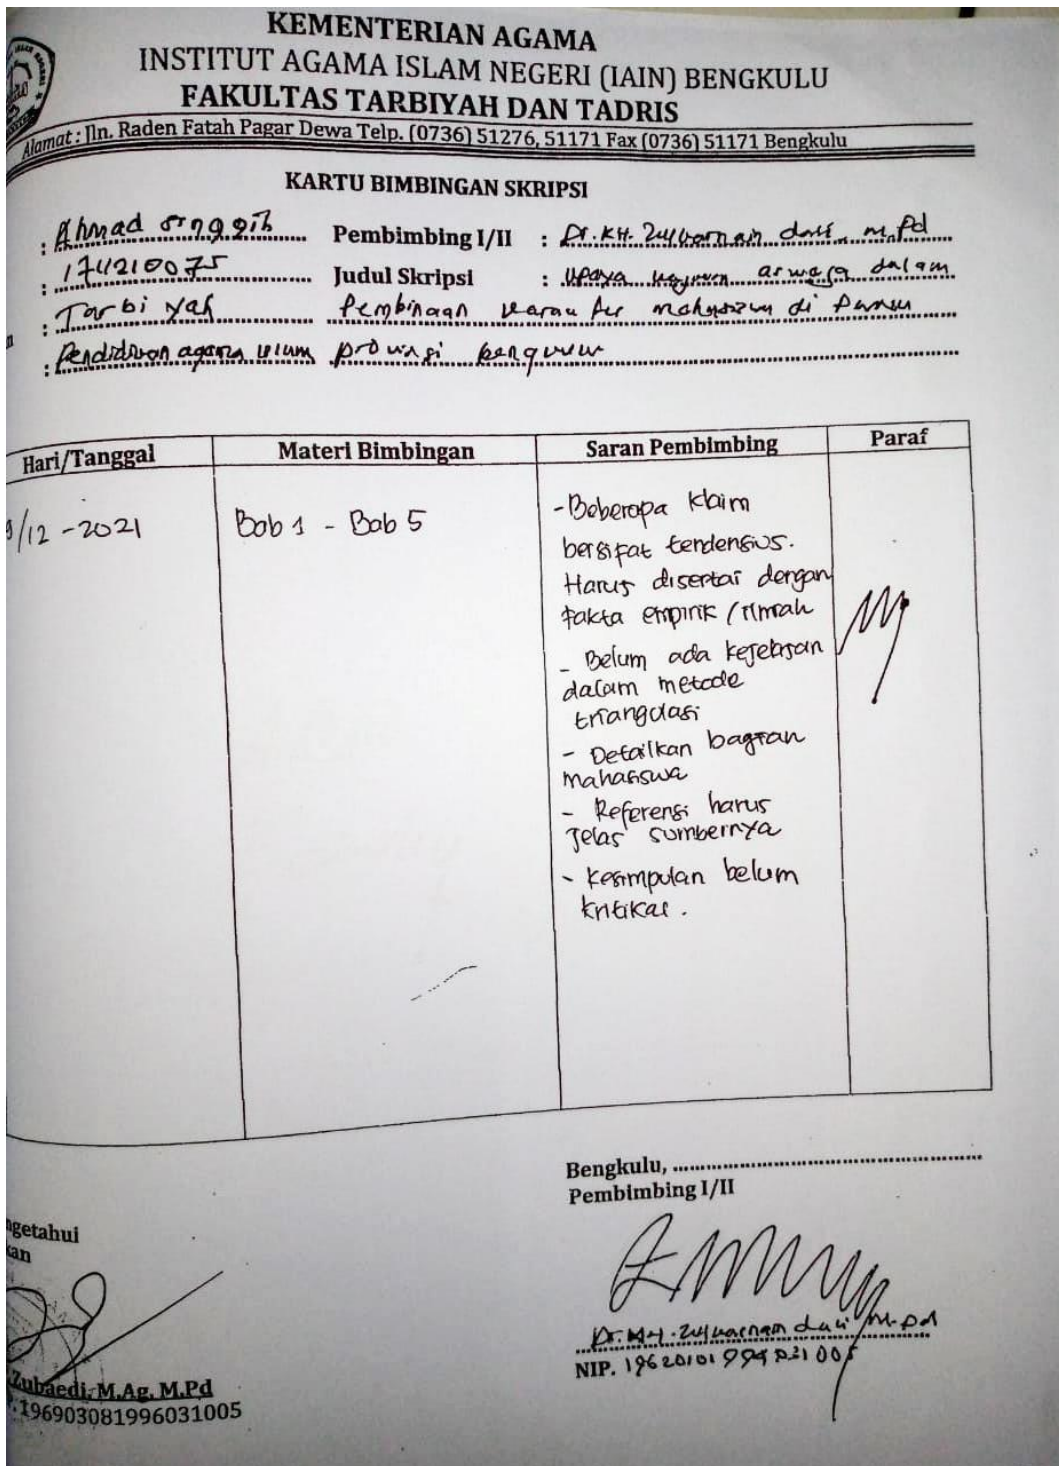 KEMENTERIAN AGAMA
INSTITUT AGAMA ISLAM NEGERI (IAIN) BENGKULU
FAKULTAS TARBIYAH DAN TADRIS
Alamat : Jln. Raden Fatah Pagar Dewa Telp. (0736) 51276, 51171 Fax (0736) 51171 Bengkulu
KARTU BIMBINGAN SKRIPSI
: Ahmad Pembimbing I/II : Dr. KH. Zulkarnain dali, M.Pd
: 174210075 Judul Skripsi : upaya aswaja dalam
: Tarbiyah Pembinaan di
: Pendidikan agama islam provinsi bengkulu
Hari/Tanggal Materi Bimbingan Saran Pembimbing Paraf
9/12-2021 Bab 1 - Bab 5 - Beberapa klaim
bersifat tendensius.
Harus disertai dengan
fakta empirik / ilmiah
- Belum ada kejelasan
dalam metode
triangulasi
- Detailkan bagian
mahasiswa
- Referensi harus
jelas sumbernya
- kesimpulan belum
kritikal.
Bengkulu, ........................
Pembimbing I/II
ngetahui
kan
Dr. KH. Zulkarnain dali M.Pd
NIP.
Zubaedi, M.Ag, M.Pd
196903081996031005